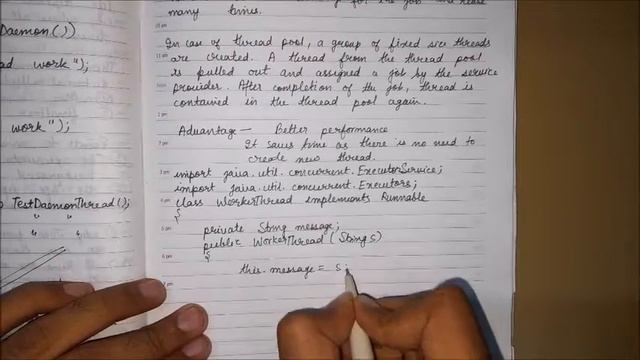 Daemon.())
ad work");
work");
TestDaemonThread();
for the job and reuse
many times.
In case of thread pool, a group of fixed size threads
are created. A thread from the thread pool
is pulled out and assigned a job by the service
provider. After completion of the job, thread is
contained in the thread pool again.
Advantage — Better performance
It saves time as there is no need to
create new thread.
import java.util.concurrent.ExecutorService;
import java.util.concurrent.Executors;
class WorkerThread implements Runnable
{
private String message;
public WorkerThread (String s)
{
this.message = s;